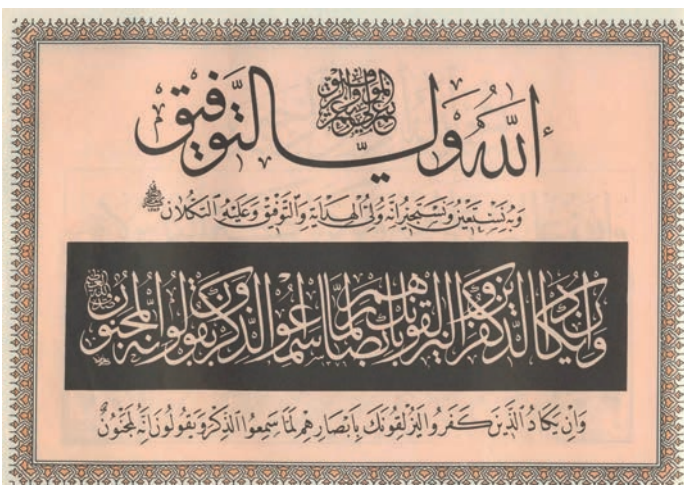 الله ولي التوفيق
وَبِهِ نَسْتَعِينُ وَنَسْتَجِيرُ إِنَّهُ وَلِيُّ الْهِدَايَةِ وَالتَّوْفِيقِ وَعَلَيْهِ التُّكْلَانُ
وَإِنْ يَكَادُ الَّذِينَ كَفَرُوا لَيُزْلِقُونَكَ بِأَبْصَارِهِمْ لَمَّا سَمِعُوا الذِّكْرَ وَيَقُولُونَ إِنَّهُ لَمَجْنُونٌ
وَاِنْ يَكَادُ الَّذِينَ كَفَرُوا لَيُزْلِقُونَكَ بِاَبْصَارِهِمْ لَمَّا سَمِعُوا الذِّكْرَ وَيَقُولُونَ اِنَّهُ لَمَجْنُونٌ